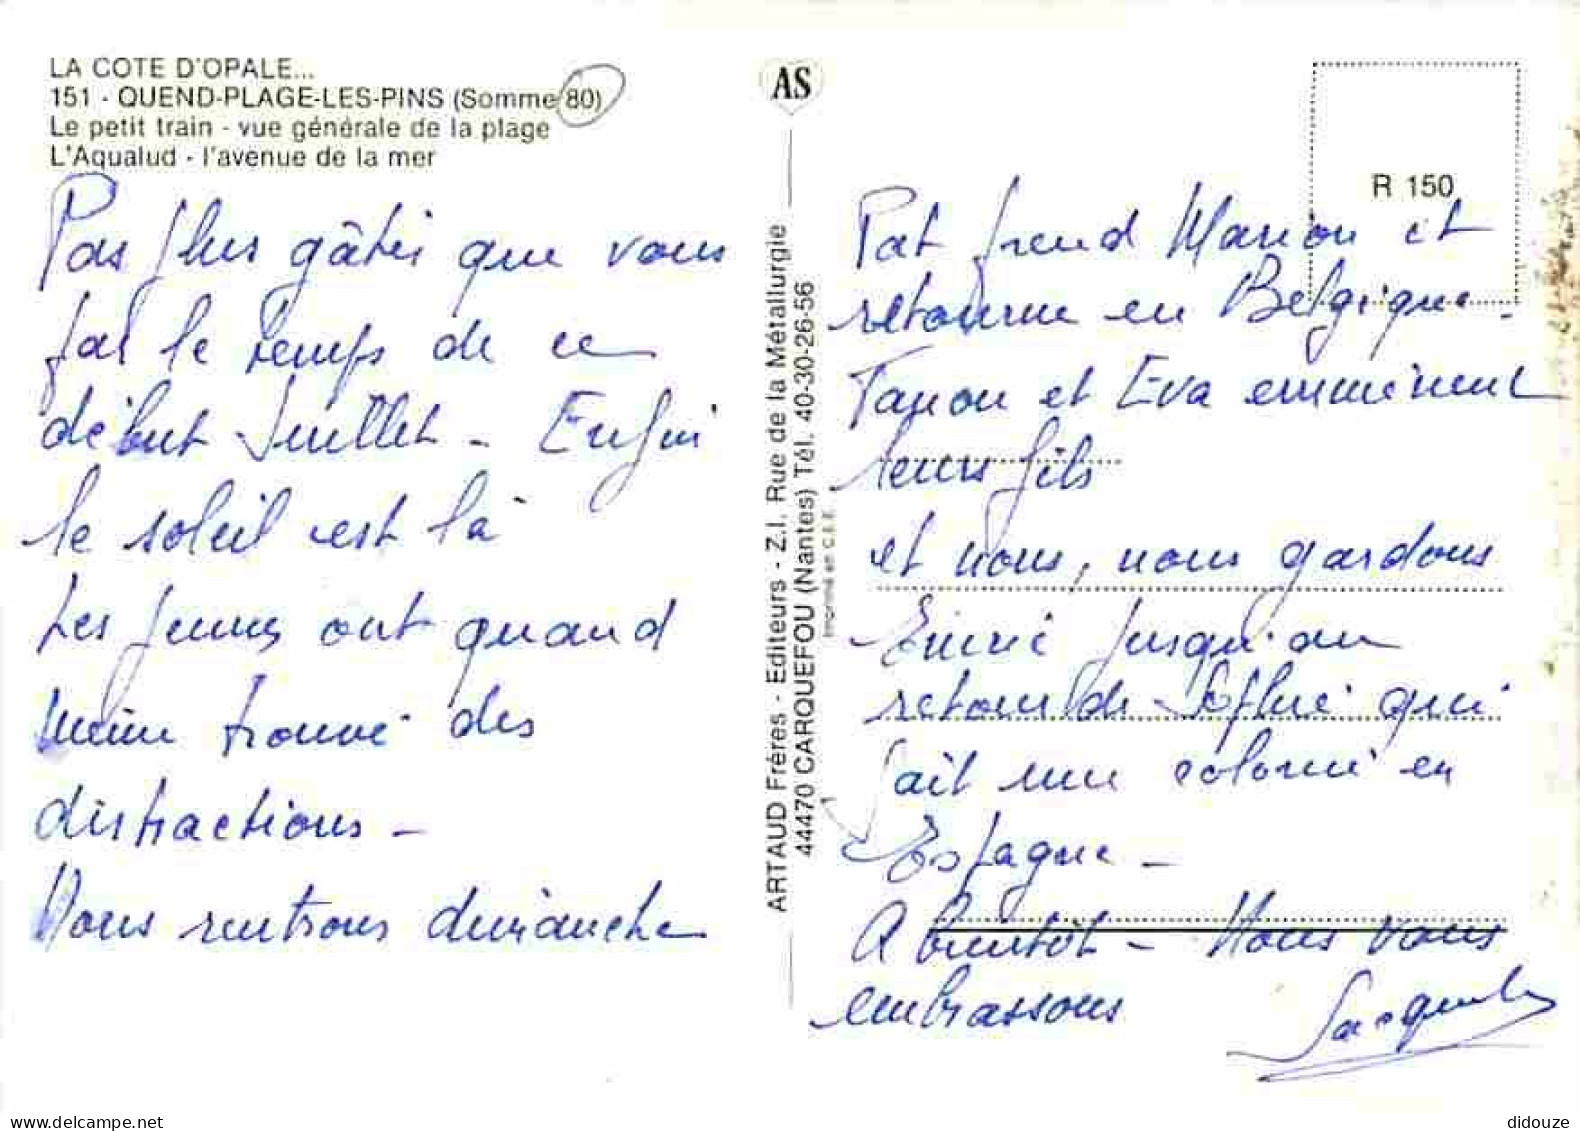 LA COTE D'OPALE...
151 - QUEND-PLAGE-LES-PINS (Somme 80)
Le petit train - vue générale de la plage
L'Aqualud - l'avenue de la mer
Pas plus gâtés que vous
par le temps de ce
début Juillet - Enfin
le soleil est là
Les jeunes ont quand
même trouvé des
distractions -
Nous rentrons dimanche
AS
ARTAUD Frères - Editeurs - Z.I. Rue de la Métallurgie
44470 CARQUEFOU (Nantes) Tél. 40-30-26-56
Imprimé en C.E.E.
R 150
Pat prend Marion et
retourne en Belgique -
et Eva emmènent
leurs fils
et nous, nous gardons
jusqu'au
retour de Sophie qui
fait une colonie en
Espagne -
A bientôt - Nous vous
embrassons
Jacqueline
didouze
delcampe.net